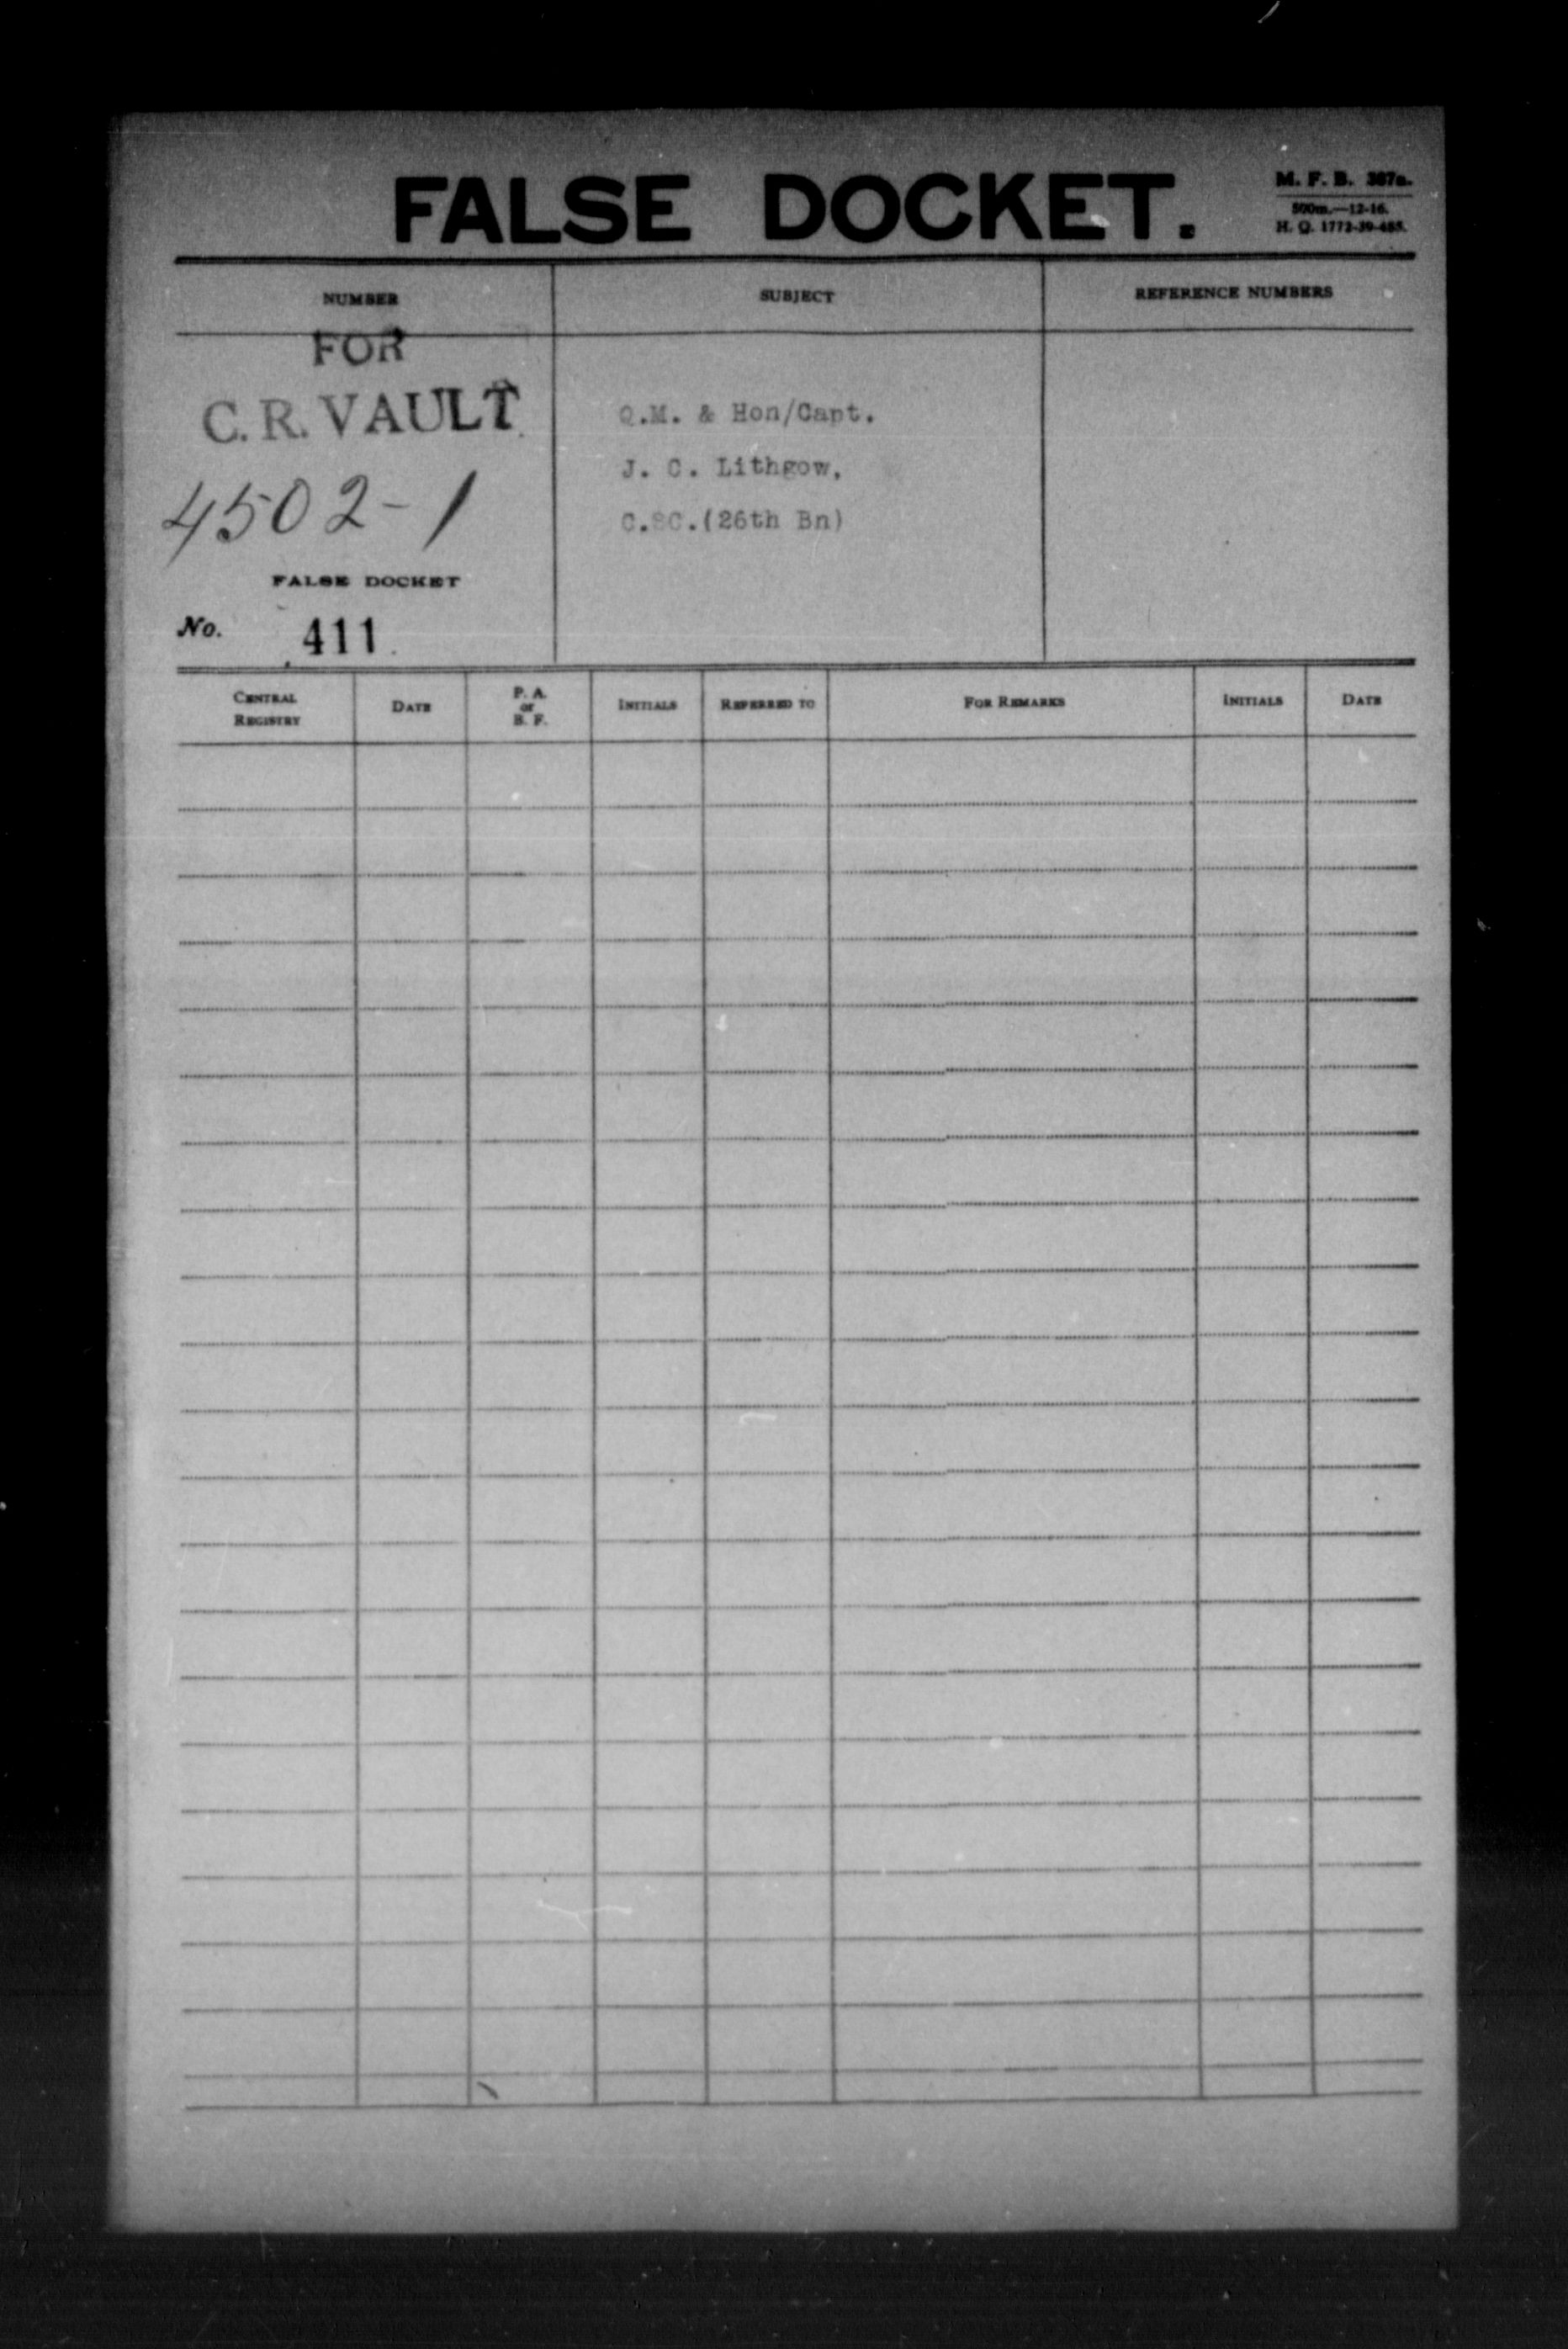 FALSE DOCKET.
M. F. B. 387a.
500m.—12-16.
H. Q. 1772-39-485.
NUMBER
SUBJECT
REFERENCE NUMBERS
FOR
C. R. VAULT
4502-1
Q.M. & Hon/Capt.
J. C. Lithgow,
C.SC.(26th Bn)
FALSE DOCKET
No. 411
CENTRAL REGISTRY
DATE
P. A. or B. F.
INITIALS
REFERRED TO
FOR REMARKS
INITIALS
DATE